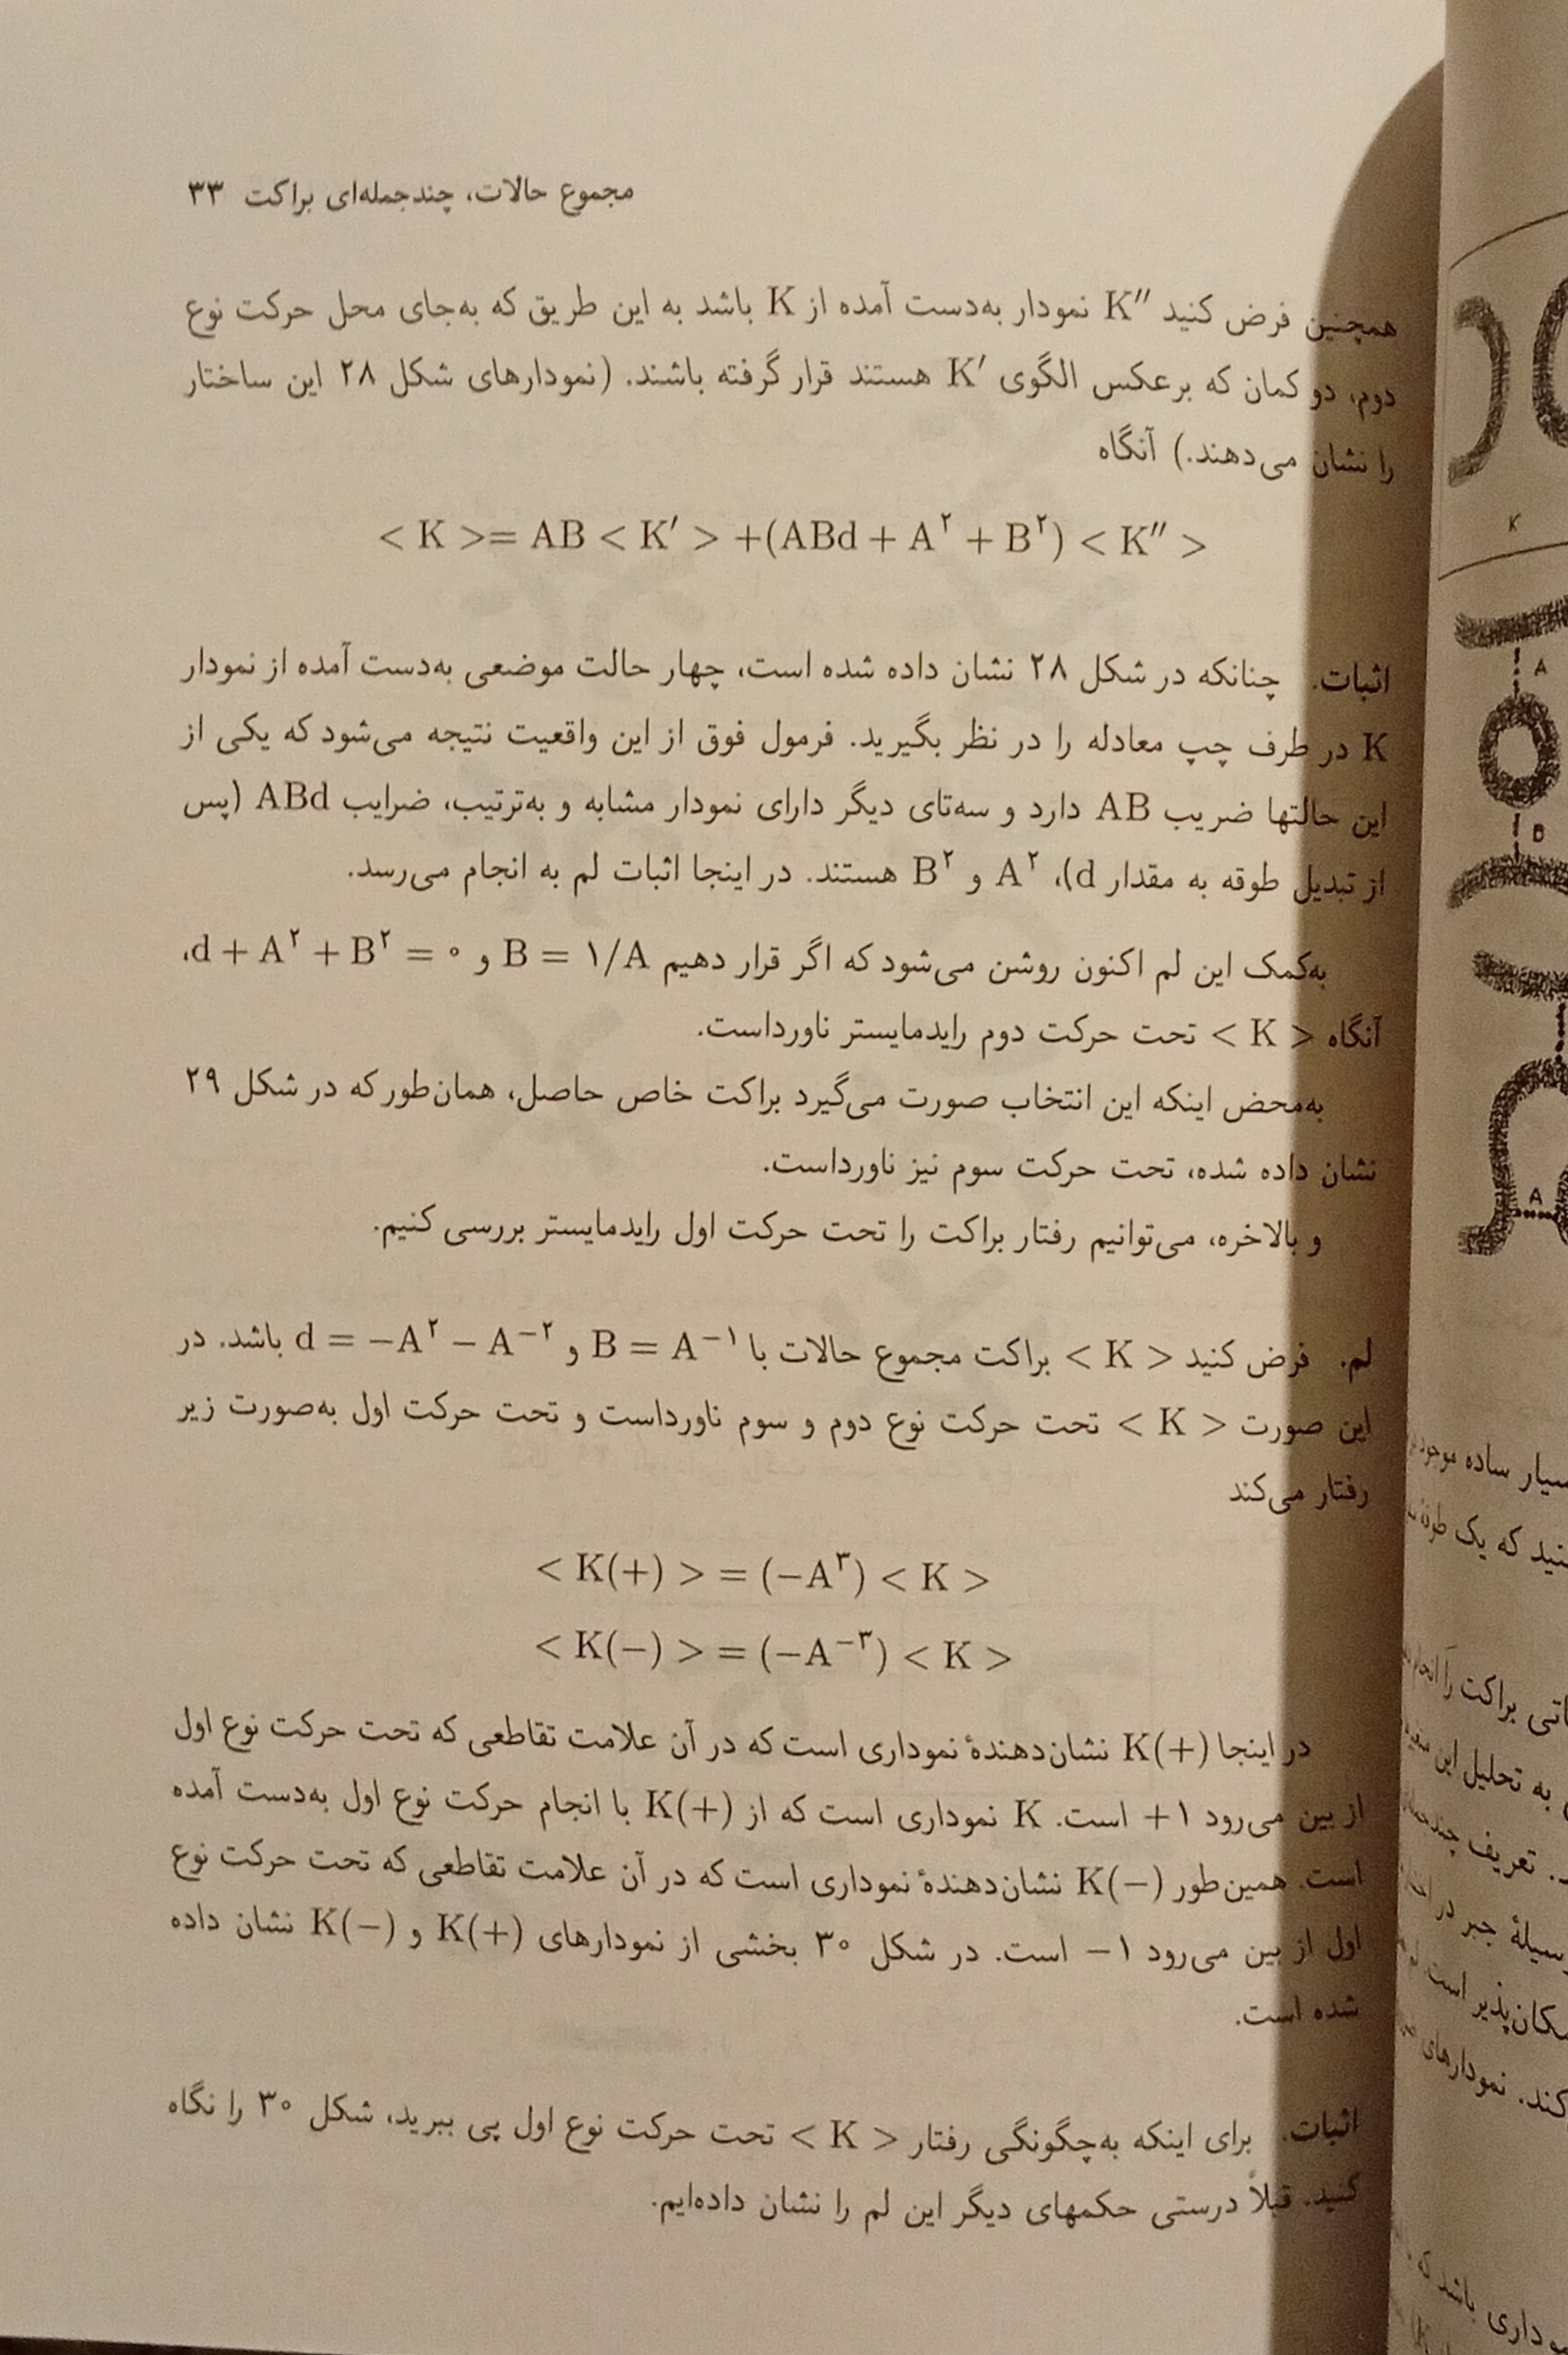 مجموع حالات، چندجمله‌ای براکت ۳۳
همچنین فرض کنید K″ نمودار به‌دست آمده از K باشد به این طریق که به‌جای محل حرکت نوع
دوم، دو کمان که برعکس الگوی K′ هستند قرار گرفته باشند. (نمودارهای شکل ۲۸ این ساختار
را نشان می‌دهند.) آنگاه
< K >= AB < K′ > +(ABd + A^۲ + B^۲) < K″ >
اثبات. چنانکه در شکل ۲۸ نشان داده شده است، چهار حالت موضعی به‌دست آمده از نمودار
K در طرف چپ معادله را در نظر بگیرید. فرمول فوق از این واقعیت نتیجه می‌شود که یکی از
این حالتها ضریب AB دارد و سه‌تای دیگر دارای نمودار مشابه و به‌ترتیب، ضرایب ABd (پس
از تبدیل طوقه به مقدار d)، A^۲ و B^۲ هستند. در اینجا اثبات لم به انجام می‌رسد.
به‌کمک این لم اکنون روشن می‌شود که اگر قرار دهیم B = ۱/A و d + A^۲ + B^۲ = ۰،
آنگاه < K > تحت حرکت دوم رایدمایستر ناورداست.
به‌محض اینکه این انتخاب صورت می‌گیرد براکت خاص حاصل، همان‌طور که در شکل ۲۹
نشان داده شده، تحت حرکت سوم نیز ناورداست.
و بالاخره، می‌توانیم رفتار براکت را تحت حرکت اول رایدمایستر بررسی کنیم.
لم. فرض کنید < K > براکت مجموع حالات با B = A^−۱ و d = −A^۲ − A^−۲ باشد. در
این صورت < K > تحت حرکت نوع دوم و سوم ناورداست و تحت حرکت اول به‌صورت زیر
رفتار می‌کند
< K(+) > = (−A^۳) < K >
< K(−) > = (−A^−۳) < K >
در اینجا K(+) نشان‌دهندهٔ نموداری است که در آن علامت تقاطعی که تحت حرکت نوع اول
از بین می‌رود ۱+ است. K نموداری است که از K(+) با انجام حرکت نوع اول به‌دست آمده
است. همین‌طور K(−) نشان‌دهندهٔ نموداری است که در آن علامت تقاطعی که تحت حرکت نوع
اول از بین می‌رود ۱− است. در شکل ۳۰ بخشی از نمودارهای K(+) و K(−) نشان داده
شده است.
اثبات. برای اینکه به‌چگونگی رفتار < K > تحت حرکت نوع اول پی ببرید، شکل ۳۰ را نگاه
کنید. قبلاً درستی حکمهای دیگر این لم را نشان داده‌ایم.
K
A
B
A
بسیار ساده
که یک
براکت را
به تحلیل این
تعریف
جبر در
است
کند. نمودارهای
نموداری باشد که